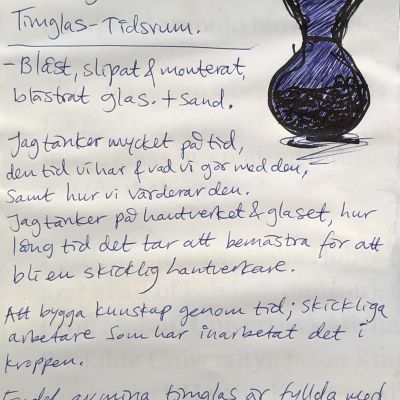 Timglas-Tidsrum.
- Blåst, slipat & monterat,
blästrat glas. + sand.
Jag tänker mycket på tid,
den tid vi har & vad vi gör med den,
samt hur vi värderar den.
Jag tänker på hantverket & glaset, hur
lång tid det tar att bemästra för att
bli en skicklig hantverkare.
Att bygga kunskap genom tid; skickliga
arbetare som har inarbetat det i
kroppen.
av mina timglas är fyllda med